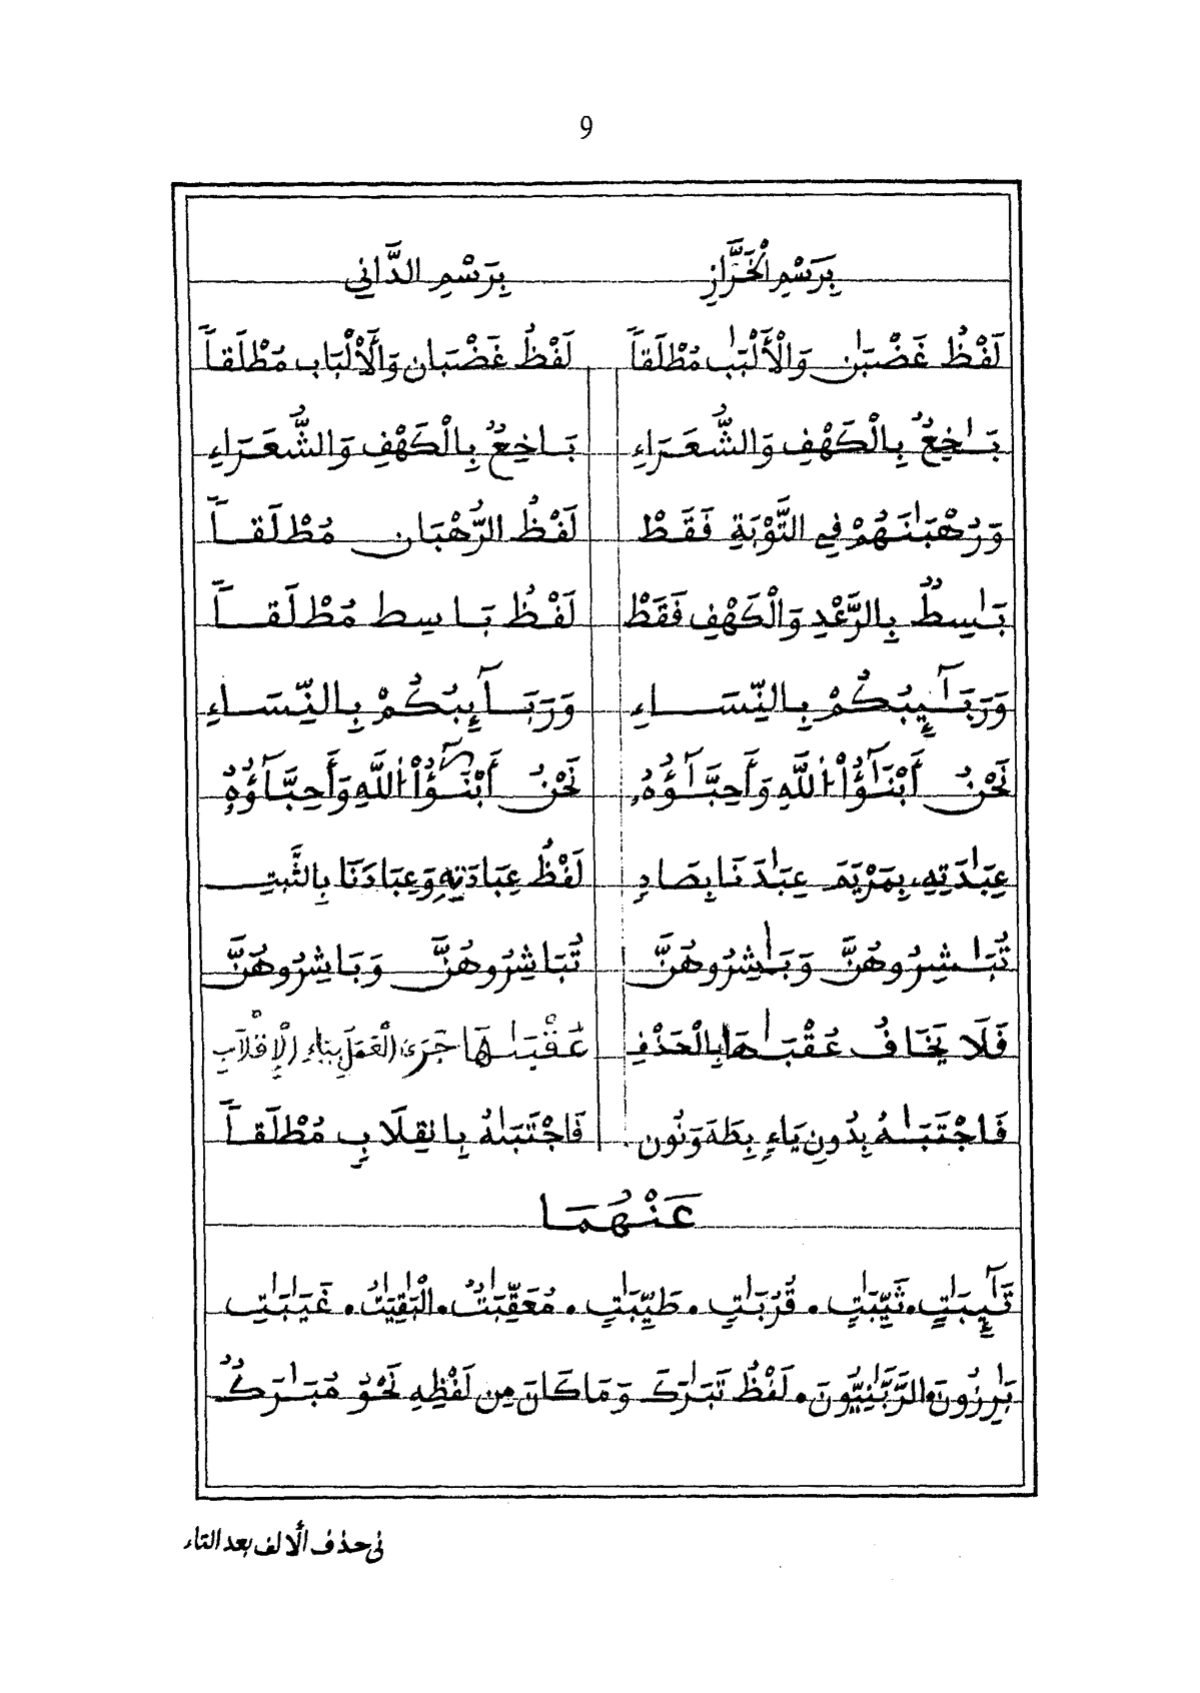 9
بِرَسْمِ الْخَرَّازِ بِرَسْمِ الدَّانِي
لَفْظُ غَضْبَٰن وَالْأَلْبَٰب مُطْلَقاً لَفْظُ غَضْبَان وَالْأَلْبَاب مُطْلَقاً
بَٰخِعٌ بِالْكَهْفِ وَالشُّعَرَاءِ بَاخِعٌ بِالْكَهْفِ وَالشُّعَرَاءِ
وَرُهْبَٰنَهُمْ فِي التَّوْبَةِ فَقَطْ لَفْظُ الرُّهْبَان مُطْلَقاً
بَٰسِطٌ بِالرَّعْدِ وَالْكَهْفِ فَقَطْ لَفْظُ بَاسِط مُطْلَقاً
وَرَبَٰٓئِبُكُمْ بِالنِّسَاءِ وَرَبَآئِبُكُمْ بِالنِّسَاءِ
نَحْنُ أَبْنَٰٓؤُاْ اللَّهِ وَأَحِبَّٰٓؤُهُۥ نَحْنُ أَبْنَٰٓؤُاْ اللَّهِ وَأَحِبَّآؤُهُ
عِبَٰدَتِهِۦ بِمَرْيَمَ عِبَٰدَنَا بِصَادِ لَفْظُ عِبَادَتِهِ وَعِبَادَنَا بِالثَّبْتِ
تُبَٰشِرُوهُنَّ وَبَٰشِرُوهُنَّ تُبَاشِرُوهُنَّ وَبَاشِرُوهُنَّ
فَلَا يَخَافُ عُقْبَٰهَا بِالْحَذْفِ عُقْبَىٰهَا جَرَى الْعَمَلُ بِيَاءِ الْإِقْلَابِ
فَاجْتَبَٰهُ بِدُونِ يَاءٍ بِطَهَ وَنُون فَاجْتَبَىٰهُ بِانقِلَابٍ مُطْلَقاً
عَنْهُمَا
تَٰٓئِبَٰتٍ • ثَيِّبَٰتٍ • قُرُبَٰتٍ • طَيِّبَٰتٍ • مُعَقِّبَٰتٌ • الْبَٰقِيَٰتُ • غَيَٰبَٰتِ
بَٰرِزُونَ • الرَّبَّٰنِيُّونَ • لَفْظُ تَبَٰرَكَ وَمَا كَانَ مِن لَفْظِهِ نَحْوُ مُبَٰرَكٌ
في حذف الألف بعد التاء